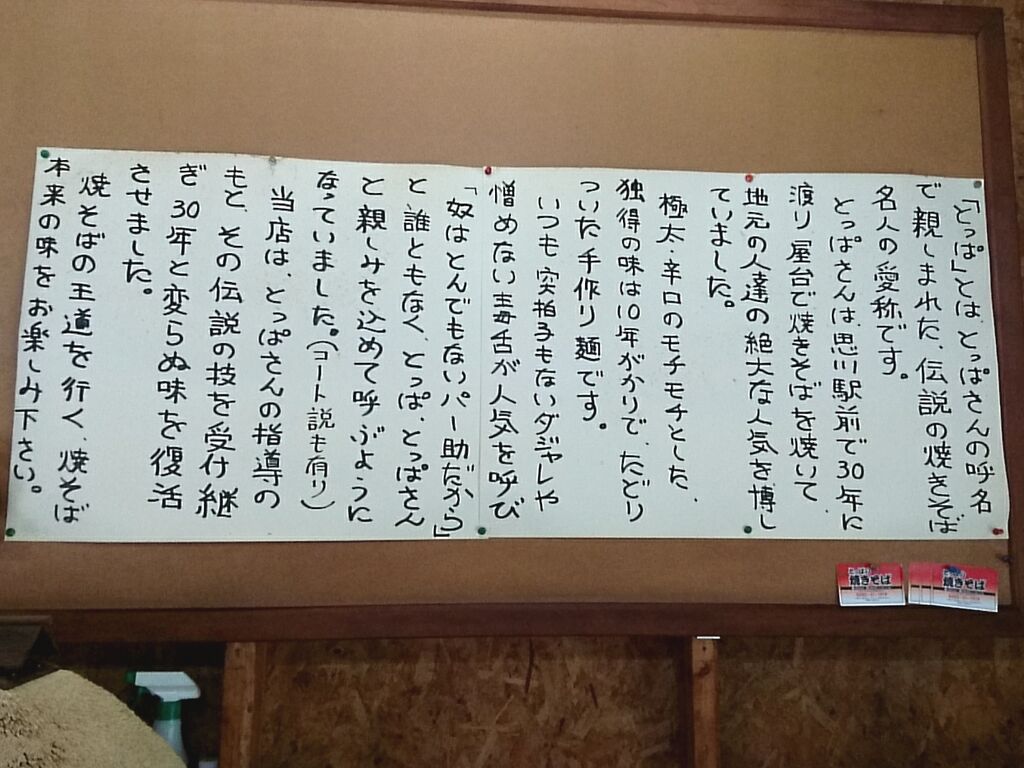 「とっぱ」とは、とっぱさんの呼名
で親しまれた、伝説の焼きそば
名人の愛称です。
とっぱさんは、思川駅前で30年に
渡り屋台で焼きそばを焼いて
地元の人達の絶大な人気を博し
ていました。
極太・辛口のモチモチとした、
独得の味は10年がかりで、たどり
ついた手作り麺です。
いつも突拍子もないダジャレや
憎めない毒舌が人気を呼び
「奴はとんでもないパー助だから」
と誰ともなく、とっぱ、とっぱさん
と親しみを込めて呼ぶように
なっていました。(コート説も有り)
当店は、とっぱさんの指導の
もと、その伝説の技を受け継
ぎ30年と変らぬ味を復活
させました。
焼そばの王道を行く、焼そば
本来の味をお楽しみ下さい。
焼きそば
焼きそば